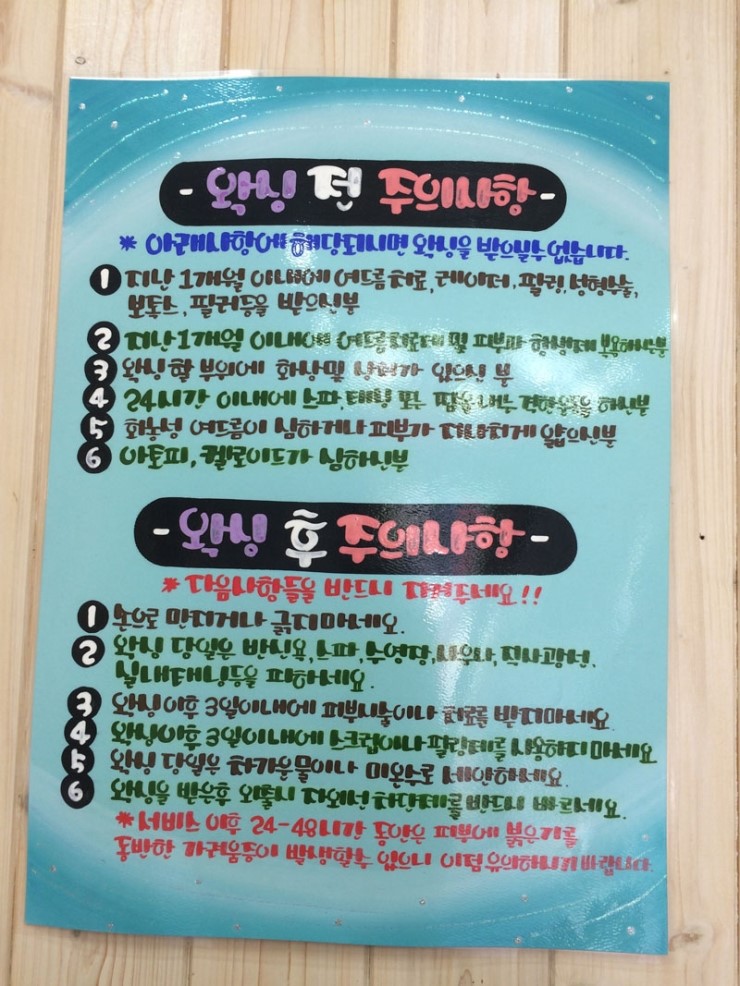 - 왁싱 전 주의사항 -
* 아래사항에 해당되시면 왁싱을 받으실수 없습니다.
1 지난 1개월 이내에 여드름치료, 레이저, 필링, 성형수술,
보톡스, 필러등을 받으신분
2 지난 1개월 이내에 여드름치료제 및 피부과 항생제 복용하신분
3 왁싱할 부위에 화상및 상처가 있으신 분
4 24시간 이내에 스파, 태닝 또는 땀을내는 격한운동을 하신분
5 화농성 여드름이 심하거나 피부가 지나치게 얇으신분
6 아토피, 켈로이드가 심하신분
- 왁싱 후 주의사항 -
* 다음사항들을 반드시 지켜주세요!!
1 손으로 만지거나 긁지마세요.
2 왁싱 당일은 반신욕, 스파, 수영장, 사우나, 직사광선,
실내태닝등을 피하세요.
3 왁싱이후 3일이내에 피부시술이나 치료를 받지마세요
4 왁싱이후 3일이내에 스크럽이나 필링제를 사용하지 마세요
5 왁싱 당일은 차가운물이나 미온수로 세안하세요.
6 왁싱을 받은후 외출시 자외선 차단제를 반드시 바르세요.
*서비스 이후 24-48시간 동안은 피부에 붉은기를
동반한 가려움증이 발생할수 있으니 이점유의하시기 바랍니다.